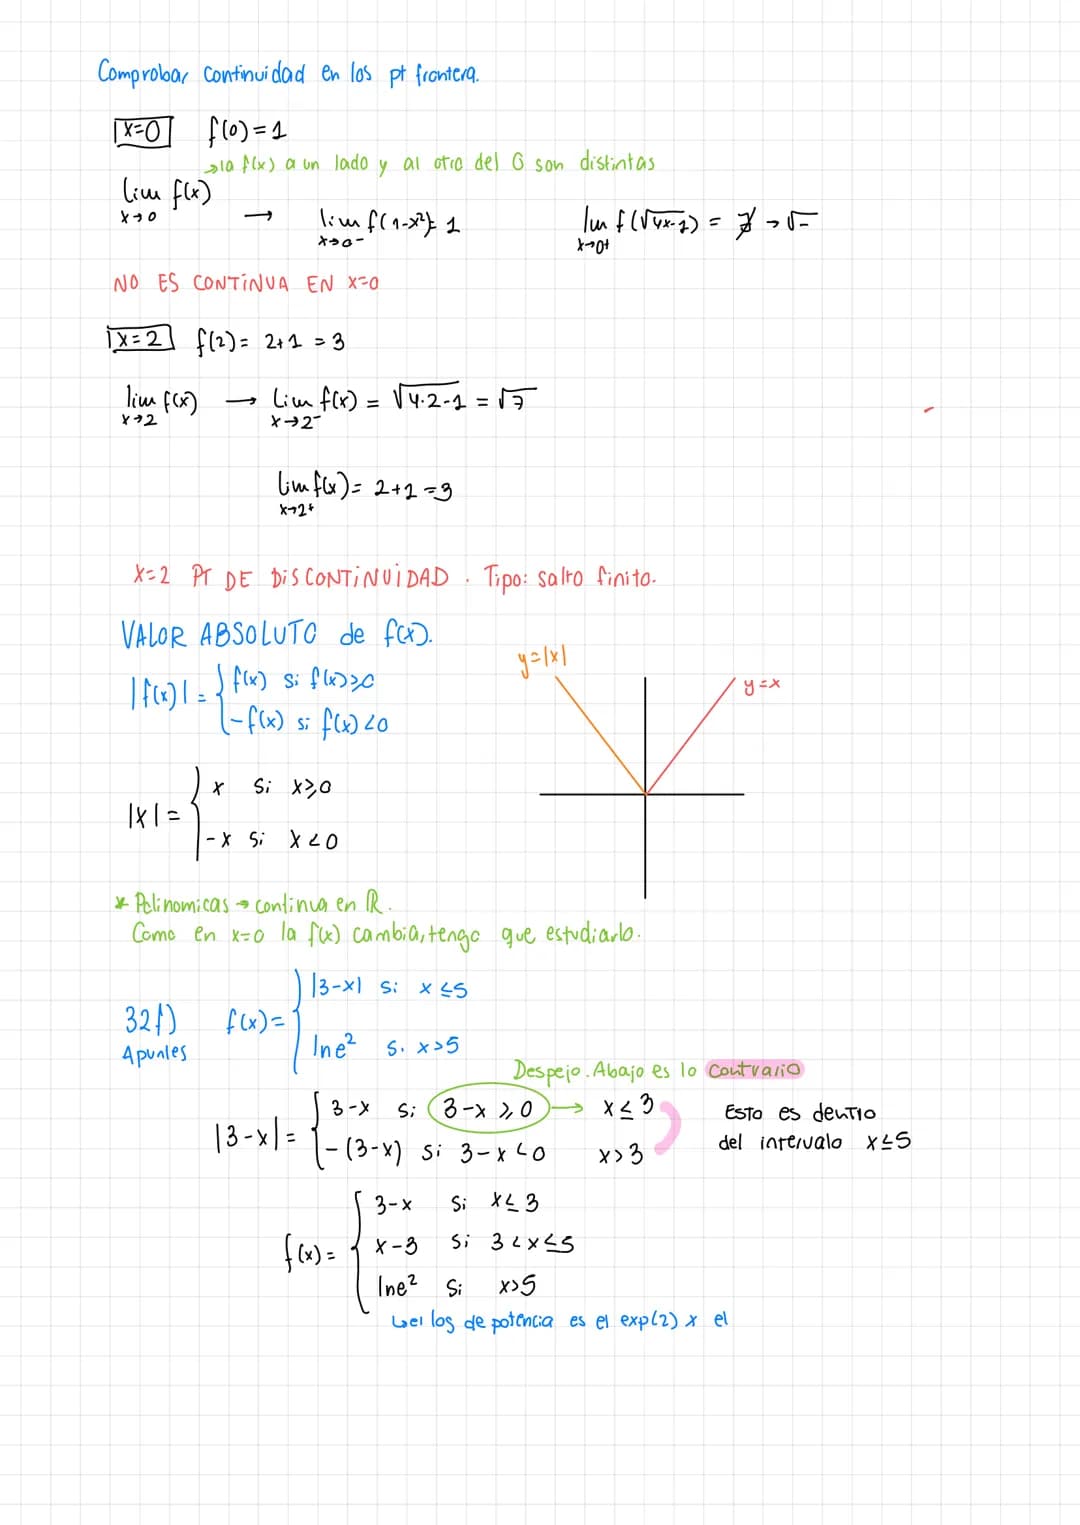 Comprobar continuidad en los pt frontera.
x=0 f(0)=1
→la f(x) a un lado y al otro del 0 son distintas
lim f(x) x→0 → lim f(1-x²)= 1 x→0- lim f(√4x-1) = ∄ → √-  x→0+
NO ES CONTÍNUA EN x=0
x=2 f(2)= 2+1 = 3
lim f(x) x→2 → lim f(x) = √4·2-1 = √7 x→2-
lim f(x)= 2+1=3 x→2+
x=2 PT DE DISCONTINUIDAD. Tipo: salto finito.
VALOR ABSOLUTO de f(x).
y=|x|
y=x
|f(x)| = { f(x) si f(x)≥0
-f(x) si f(x)<0
|x| = { x si x≥0
-x si x<0
* Polinomicas → continua en ℝ.
Como en x=0 la f(x) cambia, tengo que estudiarlo.
32f) f(x)= { |3-x| si x≤5
Apuntes
lne² si x>5
Despejo. Abajo es lo contrario
|3-x| = { 3-x si 3-x≥0 → x≤3
-(3-x) si 3-x<0 x>3
Esto es dentro
del intervalo x≤5
f(x) = { 3-x si x≤3
x-3 si 3<x≤5
lne² si x>5
↳el log de potencia es el exp(2) x el